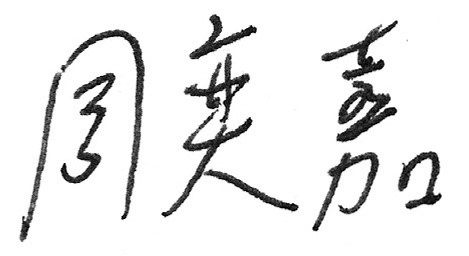 周奕嘉